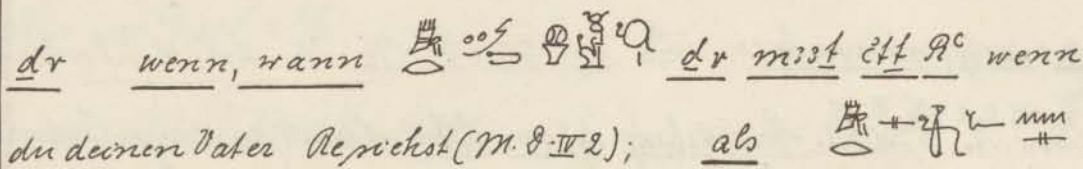 dr wenn, wann dr m33t ítt Rc wenn
du deinen Vater Re siehst (M. 8. IV 2); als